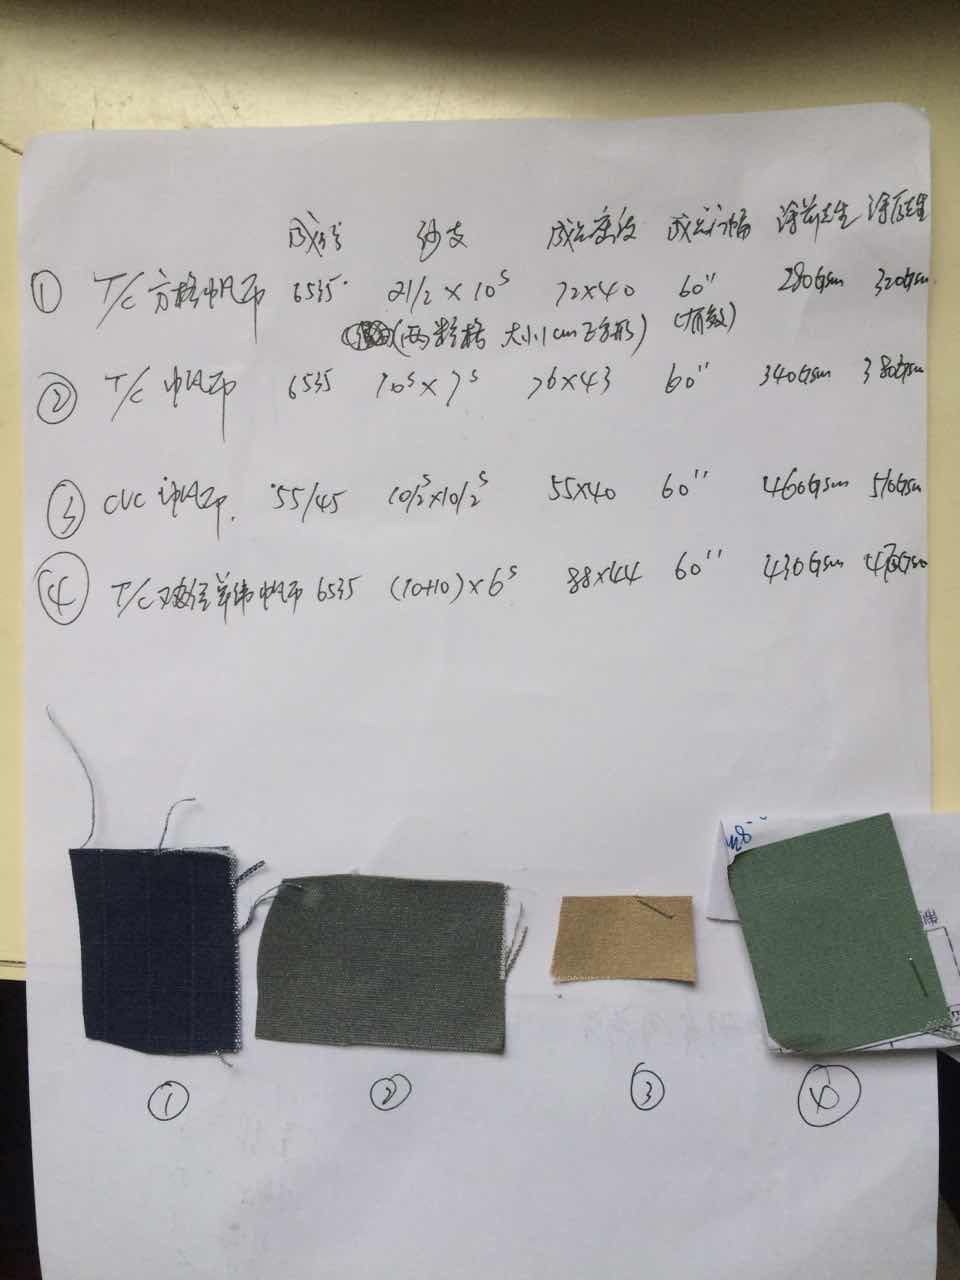 成份 纱支 成品密度 成品门幅 涂前克重 涂后克重
① T/C 方格帆布 6535 21/2 x 10s 72x40 60" 280Gsm 320Gsm
(两粒格 大小1cm正方形) (有效)
② T/C 帆布 6535 10s x 7s 76x43 60" 340Gsm 380Gsm
③ CVC 帆布. 55/45 10/2s x 10/2s 55x40 60" 460Gsm 510Gsm
④ T/C 双经单纬帆布 6535 (10+10) x 6s 88x44 60" 430Gsm
① ② ③ ④